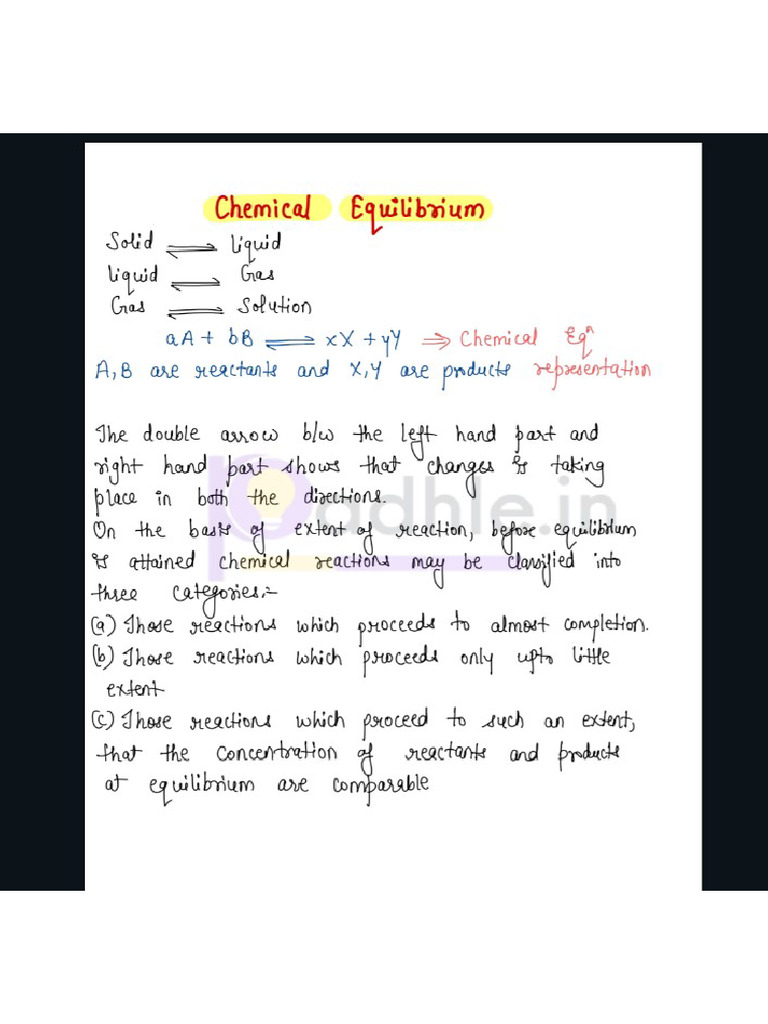 Chemical Equilibrium
Solid ⇌ liquid
liquid ⇌ Gas
Gas ⇌ Solution
aA + bB ⇌ xX + yY ⇒ Chemical Eqⁿ
A, B are reactants and X, Y are products representation
The double arrow b/w the left hand part and
right hand part shows that changes is taking
place in both the directions.
On the basis of extent of reaction, before equilibrium
is attained chemical reactions may be classified into
three categories:-
(a) Those reactions which proceeds to almost completion.
(b) Those reactions which proceeds only upto little
extent
(c) Those reactions which proceed to such an extent,
that the concentration of reactants and products
at equilibrium are comparable
Padhle.in